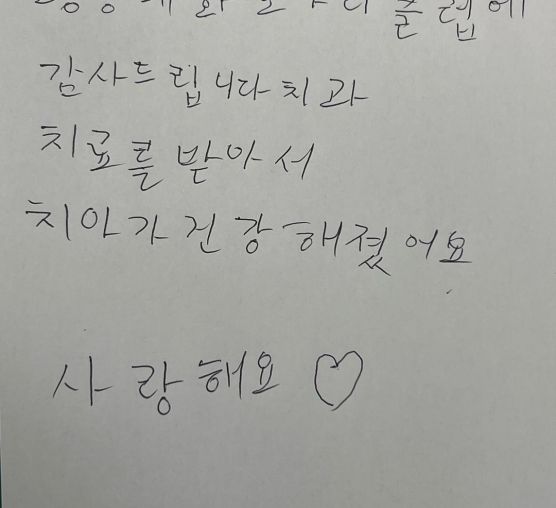 클럽에
감사드립니다 치과
치료를 받아서
치아가 건강해졌어요.
사랑해요 ♡